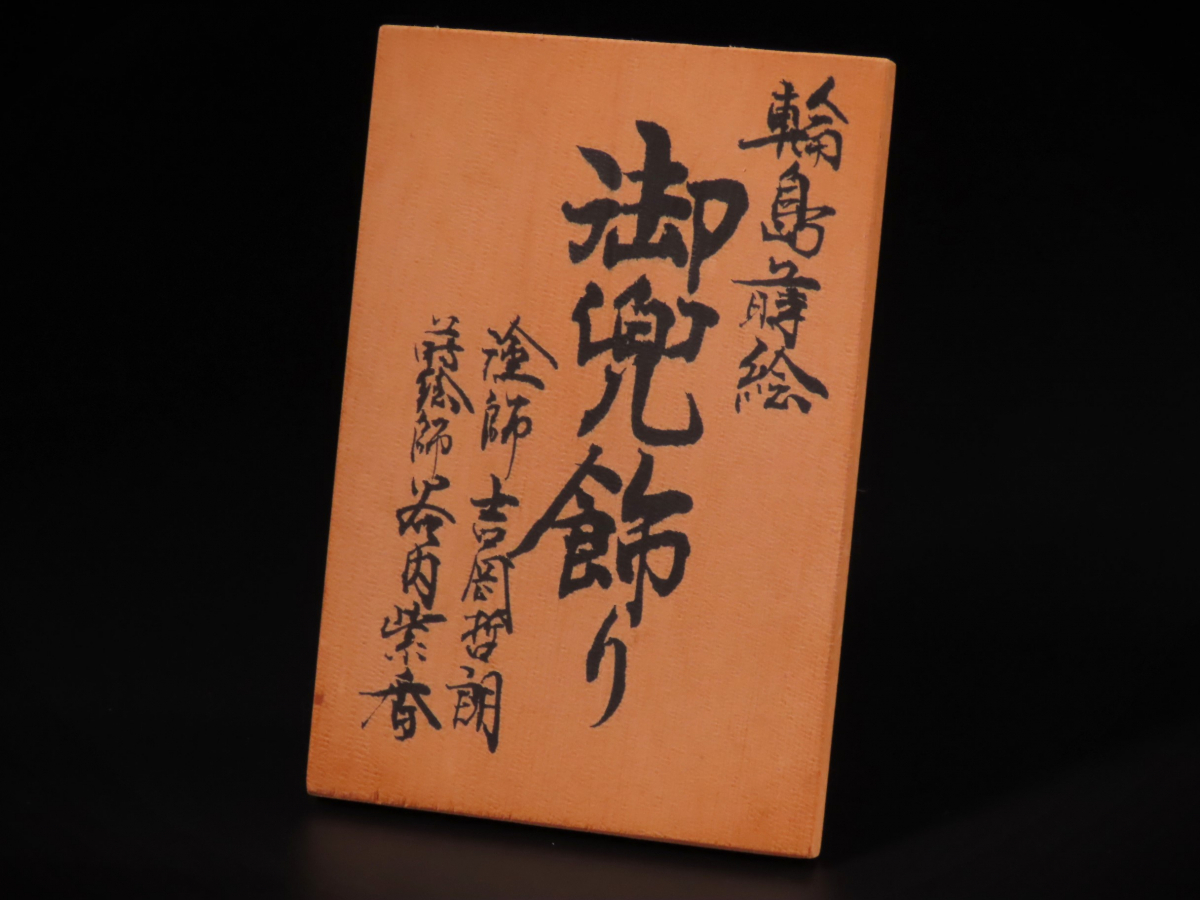 輪島蒔絵
御兜飾り
塗師 吉岡哲朗
蒔絵師 谷内紫香